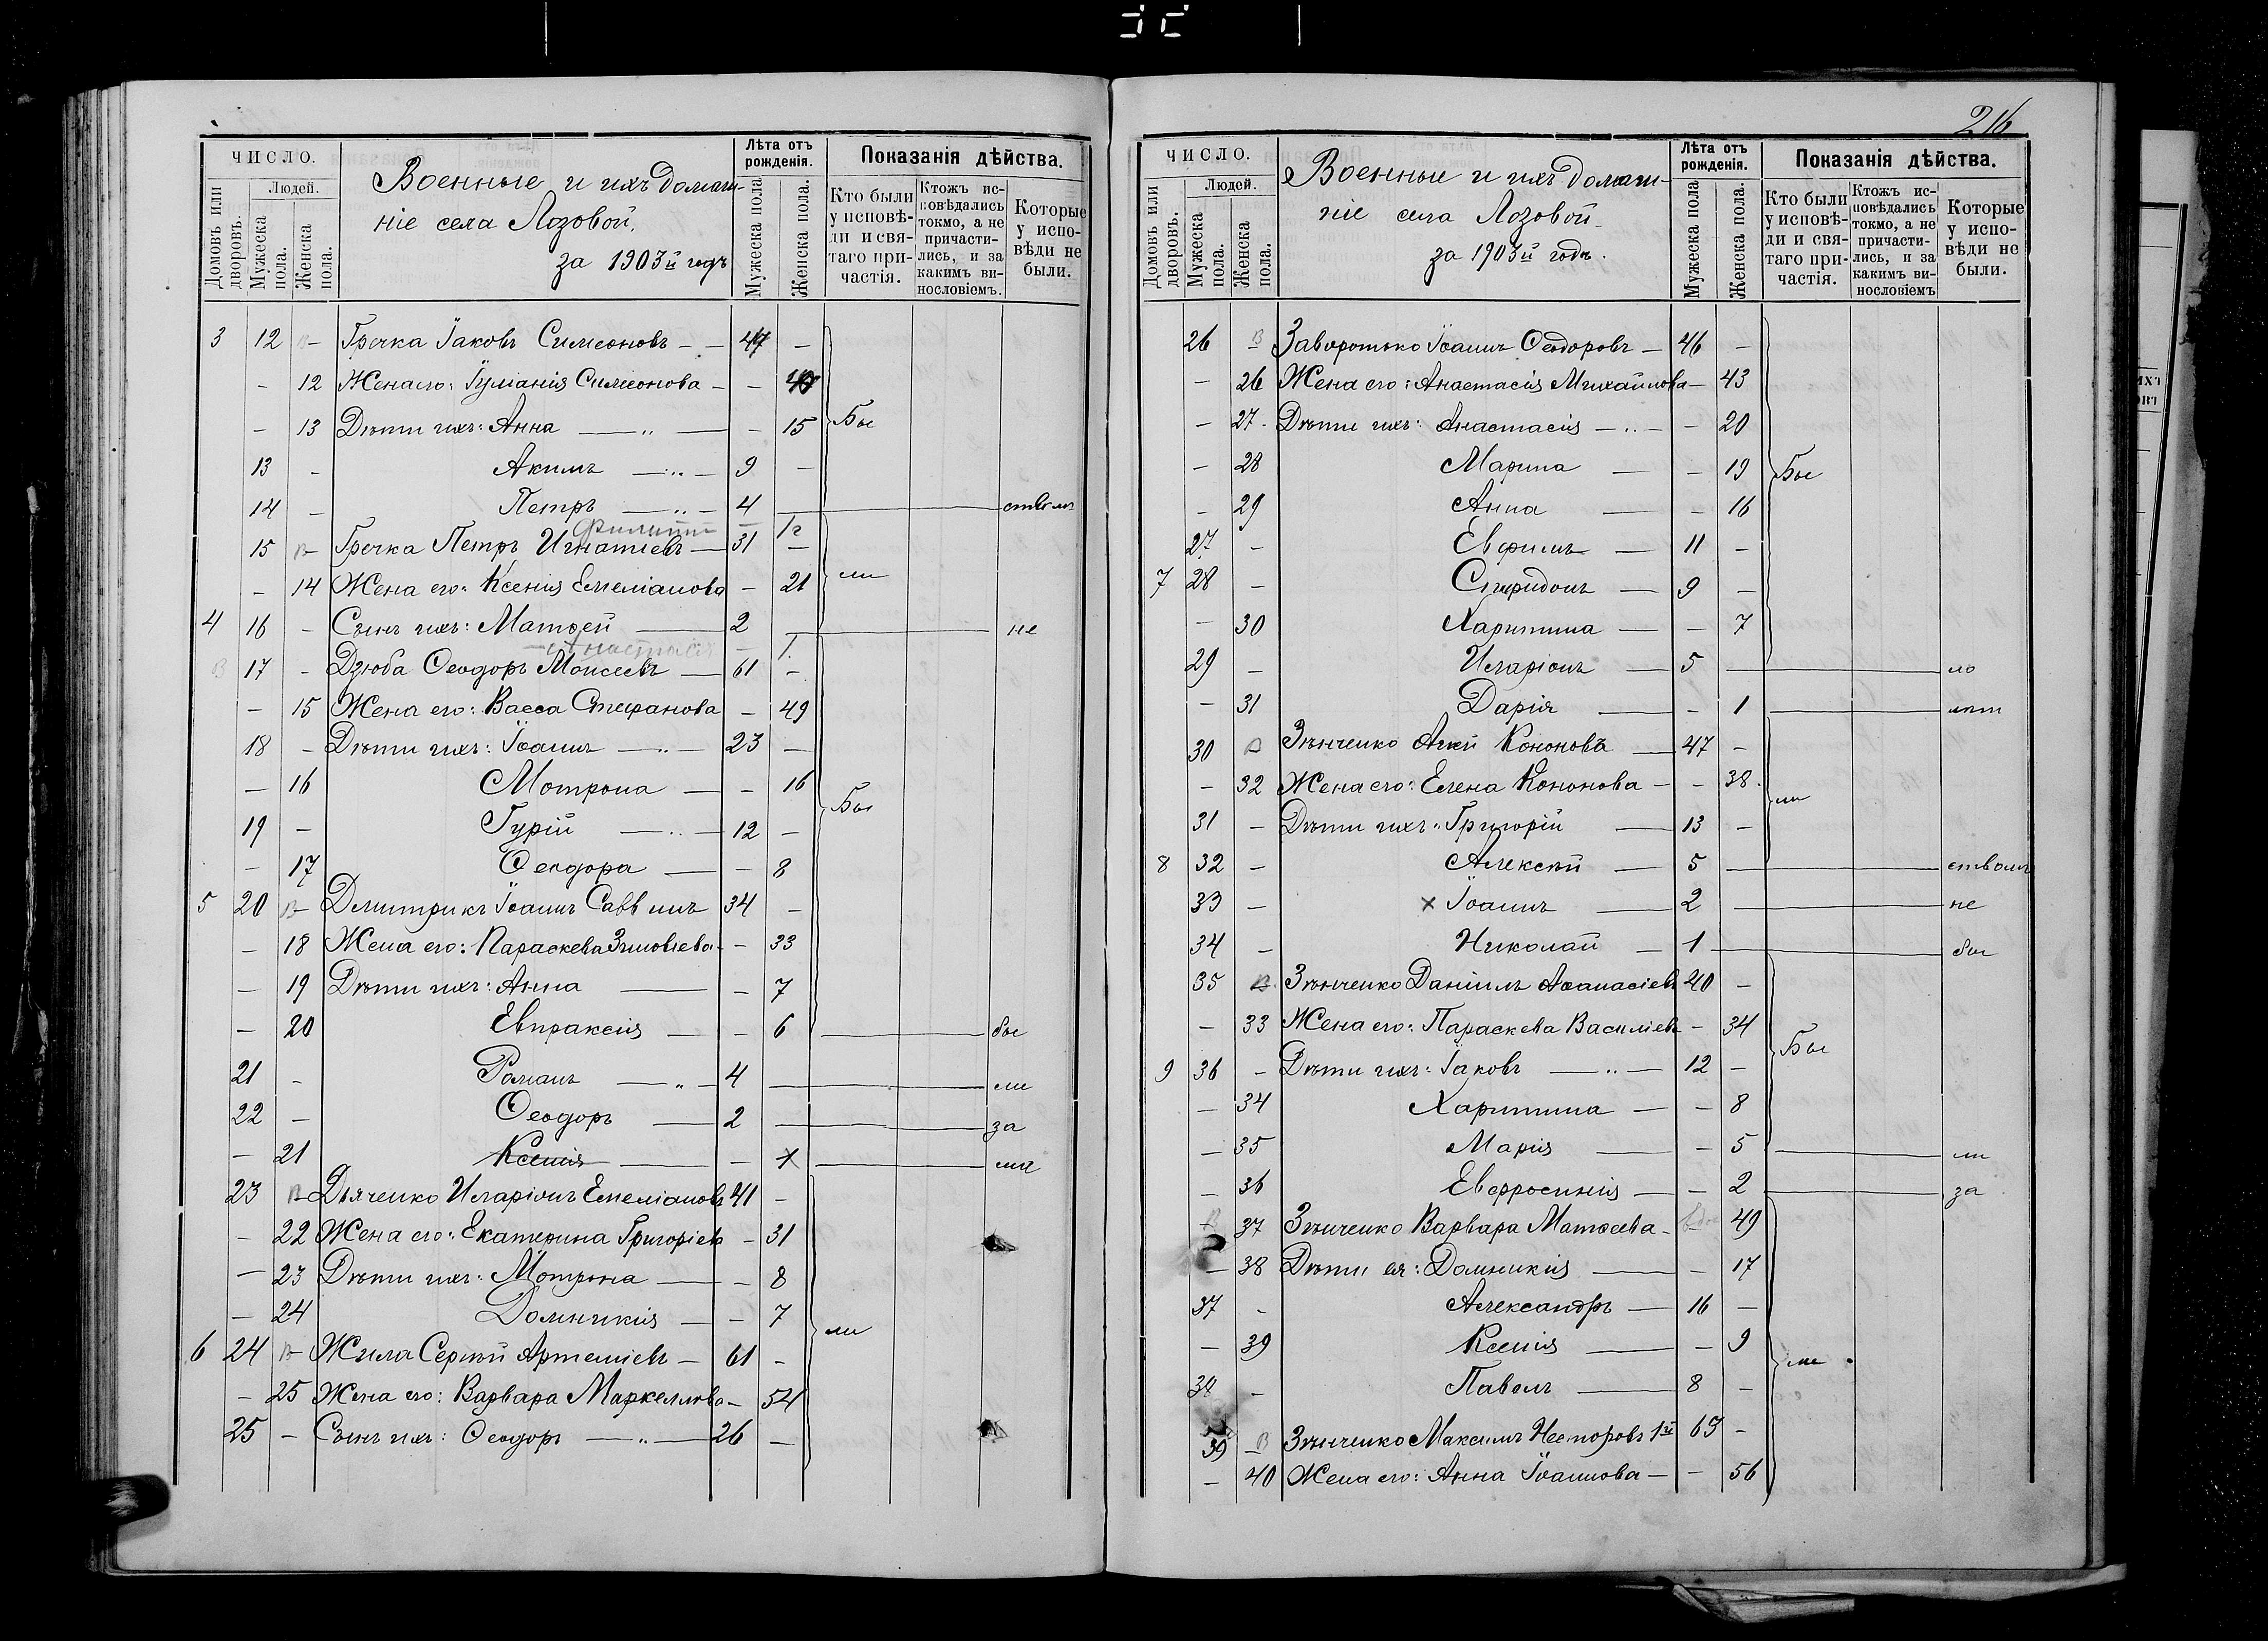 216
ЧИСЛО.
Людей.
Домовъ или дворовъ.
Мужеска пола.
Женска пола.
Военные и ихъ домаш-
ніе села Лозовой.
за 1903й годъ
Лѣта отъ рожденія.
Мужеска пола
Женска пола.
Показанія дѣйства.
Кто были у исповѣ-ди и свя-таго при-частія.
Ктожъ ис-повѣдались токмо, а не причасти-лись, и за какимъ ви-нословіемъ.
Которые у испо-вѣди не были.
3 12 В – Гречка Іаковъ Симеоновъ – – 47 –
– 12 Жена его: Іуліанія Симеонова – –
– 13 Дѣти ихъ: Анна — „ — – 15 Бы
13 – Акимъ — „ – 9 –
14 – Петръ — „ – 4 ствомъ
Филиппъ – 1г
15 В – Гречка Петръ Игнатіевъ — 31 –
– 14 Жена его: Ксенія Емеліанова – 21 ли
4 16 – Сынъ ихъ: Матѳей — 2 не
Анастасія – 1.
В 17 – Дзюба Ѳеодоръ Моисеевъ — 61 –
– 15 Жена его: Васса Стефанова – 49
18 – Дѣти ихъ: Іоаннъ — „ – 23 –
– 16 Мотрона — – 16
19 – Гурій — „ — 12 – Бы
– 17 Ѳеодора — – 8
5 20 В – Дмитрикъ Іоаннъ Саввинъ 34 –
– 18 Жена его: Параскева Зиновіева – – 33
– 19 Дѣти ихъ: Анна — – 7
– 20 Евпраксія — – 6 бы
21 – Романъ — „ – 4 ли
22 – Ѳеодоръ — 2 за
– 21 Ксенія — – 1 ма
23 В – Дьяченко Иларіонъ Емеліановъ 41 –
– 22 Жена его: Екатерина Григоріева – 31
– 23 Дѣти ихъ: Мотрона — – 8
– 24 Домникія — – 7
6 24 В – Жила Сергѣй Артеміевъ – 61 – ли
– 25 Жена его: Варвара Маркеллова – 54
25 – Сынъ ихъ: Ѳеодоръ — „ — 26 –
ЧИСЛО.
Людей.
Домовъ или дворовъ.
Мужеска пола.
Женска пола.
Военные и ихъ домаш-
ніе села Лозовой.
за 1903й годъ.
Лѣта отъ рожденія.
Мужеска пола
Женска пола.
Показанія дѣйства.
Кто были у исповѣ-ди и свя-таго при-частія.
Ктожъ ис-повѣдались токмо, а не причасти-лись, и за какимъ ви-нословіемъ
Которые у испо-вѣди не были.
26 В Заворотько Іоаннъ Ѳеодоровъ – 46 –
– 26 Жена его: Анастасія Михайлова – 43
– 27 Дѣти ихъ: Анастасія – „ – – 20
– 28 Марина — – 19 Бы
– 29 Анна — – 16
27 – Евфимъ — 11 –
7 28 – Спиридонъ — 9 –
– 30 Харитина — – 7
29 – Иларіонъ — 5 ло
– 31 Дарія — – 1 лѣт
30 В Зѣнченко Алексій Кононовъ — 47 –
– 32 Жена его: Елена Кононова – – 38 ли
31 – Дѣти ихъ: Григорій — 13 –
8 32 – Алексѣй — 5 ствомъ
33 – x Іоаннъ — 2 не
34 – Николай – 1 бы
35 В Зѣнченко Даніилъ Аѳанасіевъ 40 –
– 33 Жена его: Параскева Василіева – 34
9 36 – Дѣти ихъ: Іаковъ — „ — 12 – Бы
– 34 Харитина — – 8
– 35 Марія — – 5 ли
– 36 Евфросинія — – 2 за
В 37 Зѣнченко Варвара Матѳеева – 49
– 38 Дѣти ея: Домникія — – 17
37 – Александръ — 16 –
– 39 Ксенія — – 9 ли
38 – Павелъ — 8 –
39 В Зѣнченко Максимъ Несторовъ 1й 63 –
– 40 Жена его: Анна Іоаннова – – 56